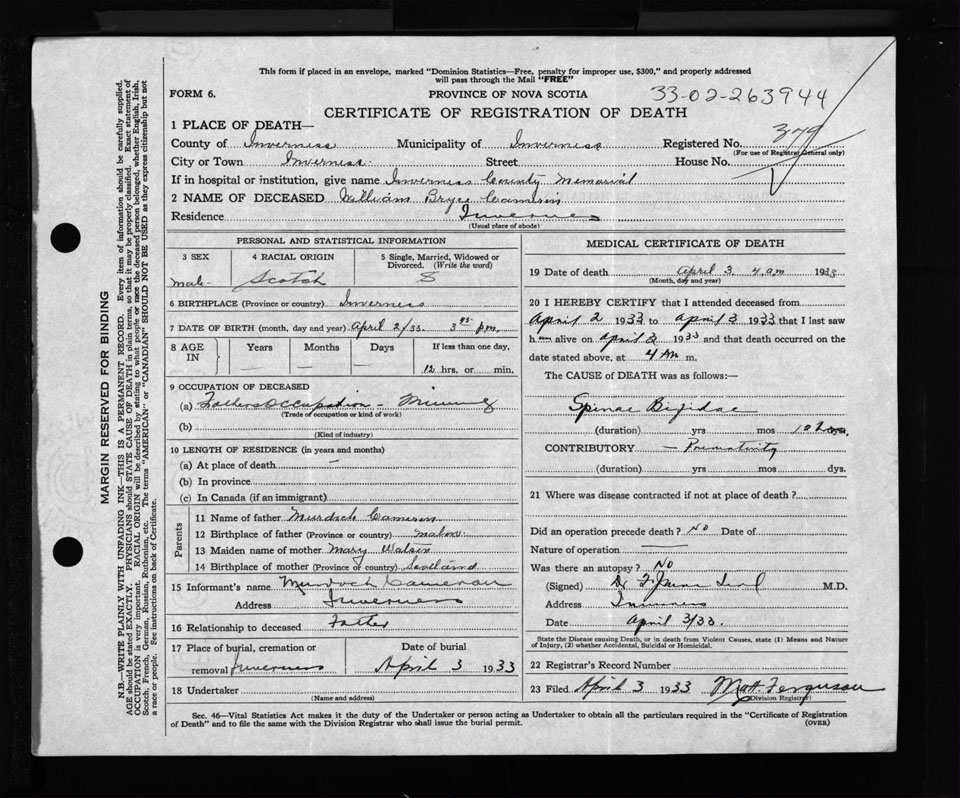 This form if placed in an envelope, marked "Dominion Statistics—Free, penalty for improper use, $300," and properly addressed
will pass through the Mail "FREE"
FORM 6.
PROVINCE OF NOVA SCOTIA
33-02-263944
CERTIFICATE OF REGISTRATION OF DEATH
1 PLACE OF DEATH—
379
County of Inverness Municipality of Inverness Registered No.
(For use of Registrar General only)
City or Town Inverness. Street House No.
If in hospital or institution, give name Inverness County Memorial
2 NAME OF DECEASED William Bryce Cameron
Residence Inverness
(Usual place of abode)
PERSONAL AND STATISTICAL INFORMATION
3 SEX
4 RACIAL ORIGIN
5 Single, Married, Widowed or
Divorced. (Write the word)
male Scotch S
6 BIRTHPLACE (Province or country) Inverness
7 DATE OF BIRTH (month, day and year) April 2/33. 3 pm.
8 AGE
IN
Years
Months
Days
If less than one day,
12 hrs. or min.
9 OCCUPATION OF DECEASED
(a) Fathers Occupation - Mining
(Trade of occupation or kind of work)
(b)
(Kind of industry)
10 LENGTH OF RESIDENCE (in years and months)
(a) At place of death –
(b) In province
(c) In Canada (if an immigrant)
Parents
11 Name of father Murdoch Cameron
12 Birthplace of father (Province or country) Mabou
13 Maiden name of mother Mary Watson
14 Birthplace of mother (Province or country) Scotland
15 Informant's name Murdoch Cameron
Address Inverness
16 Relationship to deceased Father
17 Place of burial, cremation or
removal Inverness
Date of burial
April 3 1933
18 Undertaker
(Name and address)
MEDICAL CERTIFICATE OF DEATH
19 Date of death April 3 4 am 1933
(Month, day and year)
20 I HEREBY CERTIFY that I attended deceased from
April 2 1933 to April 3 1933 that I last saw
him alive on April 3 1933 and that death occurred on the
date stated above, at 4 AM m.
The CAUSE of DEATH was as follows:—
Spinae Bifidae
(duration) yrs mos
CONTRIBUTORY — Prematurity
(duration) yrs mos dys.
21 Where was disease contracted if not at place of death?
Did an operation precede death? No Date of
Nature of operation ——
Was there an autopsy? No
(Signed) Dr M.D.
Address Inverness
Date April 3/33.
State the Disease causing Death, or in death from Violent Causes, state (1) Means and Nature
of Injury, (2) whether Accidental, Suicidal or Homicidal.
22 Registrar's Record Number
23 Filed April 3 1933 Ferguson
(Division Registrar)
Sec. 46—Vital Statistics Act makes it the duty of the Undertaker or person acting as Undertaker to obtain all the particulars required in the "Certificate of Registration
of Death" and to file the same with the Division Registrar who shall issue the burial permit.
(OVER)
MARGIN RESERVED FOR BINDING
N.B.—WRITE PLAINLY WITH UNFADING INK—THIS IS A PERMANENT RECORD. Every item of information should be carefully supplied.
AGE should be stated EXACTLY. PHYSICIANS should STATE CAUSE OF DEATH in plain terms, so that it may be properly classified. Exact statement of
OCCUPATION is very important. RACIAL ORIGIN will be described by stating to what people or race the deceased person belonged, whether English, Irish,
Scotch, French, German, Russian, Ruthenian, etc. The terms "AMERICAN" or "CANADIAN" SHOULD NOT BE USED as they express citizenship but not
a race or people. See instructions on back of Certificate.